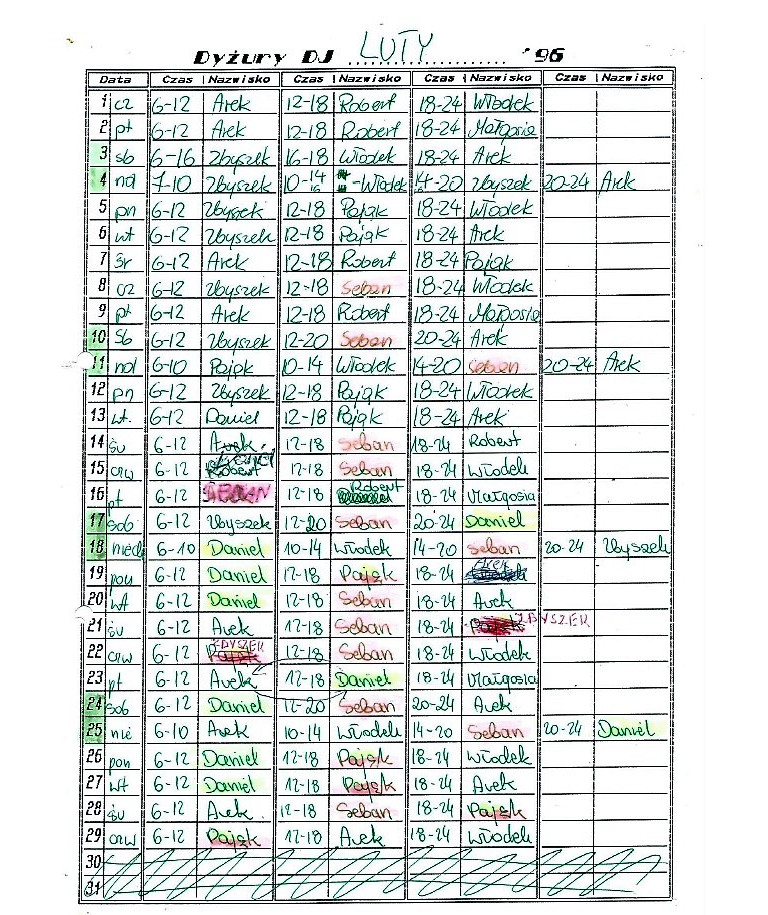 Dyżury DJ LUTY '96
Data Czas Nazwisko Czas Nazwisko Czas Nazwisko Czas Nazwisko
1 cz 6-12 Arek 12-18 Robert 18-24 Włodek
2 pt 6-12 Arek 12-18 Robert 18-24 Małgosia
3 sb 6-16 Zbyszek 16-18 Włodek 18-24 Arek
4 nd 7-10 Zbyszek 10-14 16 -Włodek 14-20 16 Zbyszek 20-24 Arek
5 pn 6-12 Zbyszek 12-18 Pająk 18-24 Włodek
6 wt 6-12 Zbyszek 12-18 Pająk 18-24 Arek
7 śr 6-12 Arek 12-18 Robert 18-24 Pająk
8 cz 6-12 Zbyszek 12-18 Seban 18-24 Włodek
9 pt 6-12 Arek 12-18 Robert 18-24 Małgosia
10 sb 6-12 Zbyszek 12-20 Seban 20-24 Arek
11 nd 6-10 Pająk 10-14 Włodek 14-20 Seban 20-24 Arek
12 pn 6-12 Zbyszek 12-18 Pająk 18-24 Włodek
13 wt. 6-12 Daniel 12-18 Pająk 18-24 Arek
14 śr 6-12 Arek 12-18 Seban 18-24 Robert
15 czw 6-12 Robert 12-18 Seban 18-24 Włodek
16 pt 6-12 SEBAN 12-18 Robert 18-24 Małgosia
17 sob 6-12 Zbyszek 12-20 Seban 20-24 Daniel
18 niedz 6-10 Daniel 10-14 Włodek 14-20 Seban 20-24 Zbyszek
19 pon 6-12 Daniel 12-18 Pająk 18-24 Arek
20 wt 6-12 Daniel 12-18 Seban 18-24 Arek
21 śr 6-12 Arek 12-18 Seban 18-24 Pająk ZBYSZEK
22 czw 6-12 ZBYSZEK 12-18 Seban 18-24 Włodek
23 pt 6-12 Arek 12-18 Daniel 18-24 Małgosia
24 sob 6-12 Daniel 12-20 Seban 20-24 Arek
25 nie 6-10 Arek 10-14 Włodek 14-20 Seban 20-24 Daniel
26 pon 6-12 Daniel 12-18 Pająk 18-24 Włodek
27 wt 6-12 Daniel 12-18 Pająk 18-24 Arek
28 śr 6-12 Arek 12-18 Seban 18-24 Pająk
29 czw 6-12 Pająk 12-18 Arek 18-24 Włodek
30
31